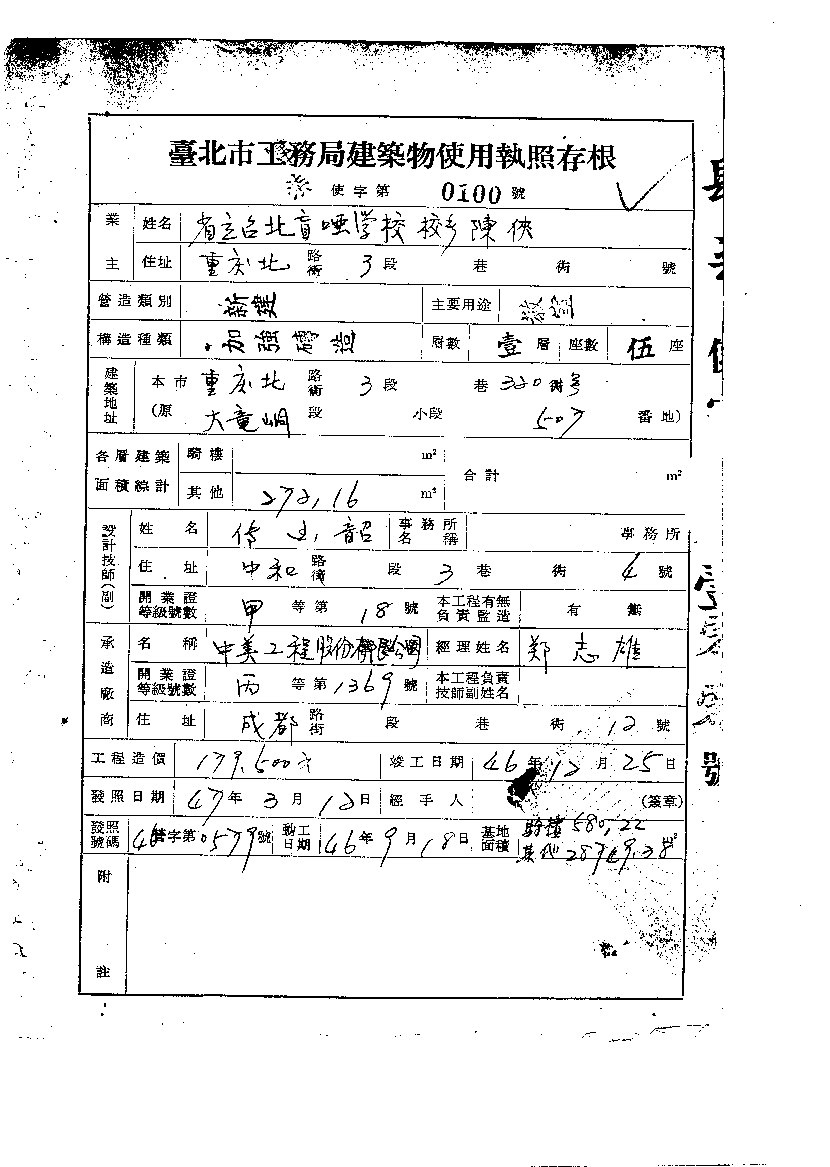 臺北市工務局建築物使用執照存根
使字第 0100 號
業主 姓名 省立台北盲啞学校 校長 陳俠
住址 重慶北 路街 3 段 巷 街 號
營造類別 新建 主要用途 教室
構造種類 加強磚造 層數 壹 層 座數 伍 座
建築地址 本市 重慶北 路街 3 段 巷 320 街号
(原 大竜峒 段 小段 507 番地)
各層建築面積綜計 騎樓 m² 合計 m²
其他 272.16 m²
設計技師(副) 姓名 事務所名稱 事務所
住址 中和 路街 段 3 巷 街 4 號
開業證等級號數 甲 等第 18 號 本工程有無負責監造 有 無
承造廠商 名稱 中美工程股份有限公司 經理姓名 鄭志雄
開業證等級號數 丙 等第 1369 號 本工程負責技師副姓名
住址 成都 路街 段 巷 街 12 號
工程造價 179,500元 竣工日期 46 年 12 月 25 日
發照日期 47 年 3 月 12 日 經手人 (簽章)
發照號碼 46 營字第 0579 號 動工日期 46 年 9 月 18 日 基地面積 騎樓 580.22
其他 28749.38 m²
附註
號